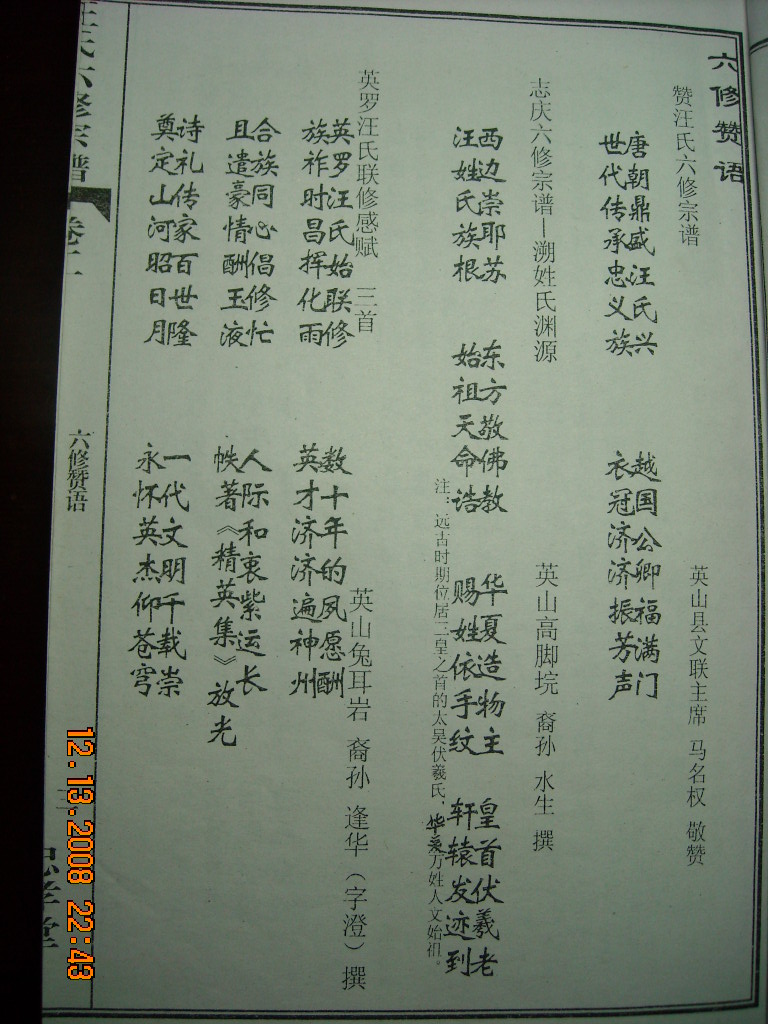 六修赞语
赞汪氏六修宗谱
英山县文联主席 马名权 敬赞
唐朝鼎盛汪氏兴 越国公卿福满门
世代传承忠义族 衣冠济济振芳声
志庆六修宗谱—溯姓氏渊源
英山高脚垸 裔孙 水生 撰
西边崇耶苏 东方敬佛教 华夏造物主 皇首伏羲老
汪姓氏族根 始祖天命诰 赐姓依手纹 轩辕发迹到
注：远古时期位居三皇之首的太吴伏羲氏，华夏万姓人文始祖。
英罗汪氏联修感赋 三首
英山兔耳岩 裔孙 逢华（字澄）撰
英罗汪氏始联修 数十年的夙愿酬
族祚时昌挥化雨 英才济济遍神州
合族同心倡修忙 人际和衷紫运长
且遣豪情酬玉液 帙著《精英集》放光
诗礼传家百世隆 一代文明千载崇
奠定山河昭日月 永怀英杰仰苍穹
汪氏六修宗谱 卷二
六修赞语
忠孝堂
12.13.2008 22:43